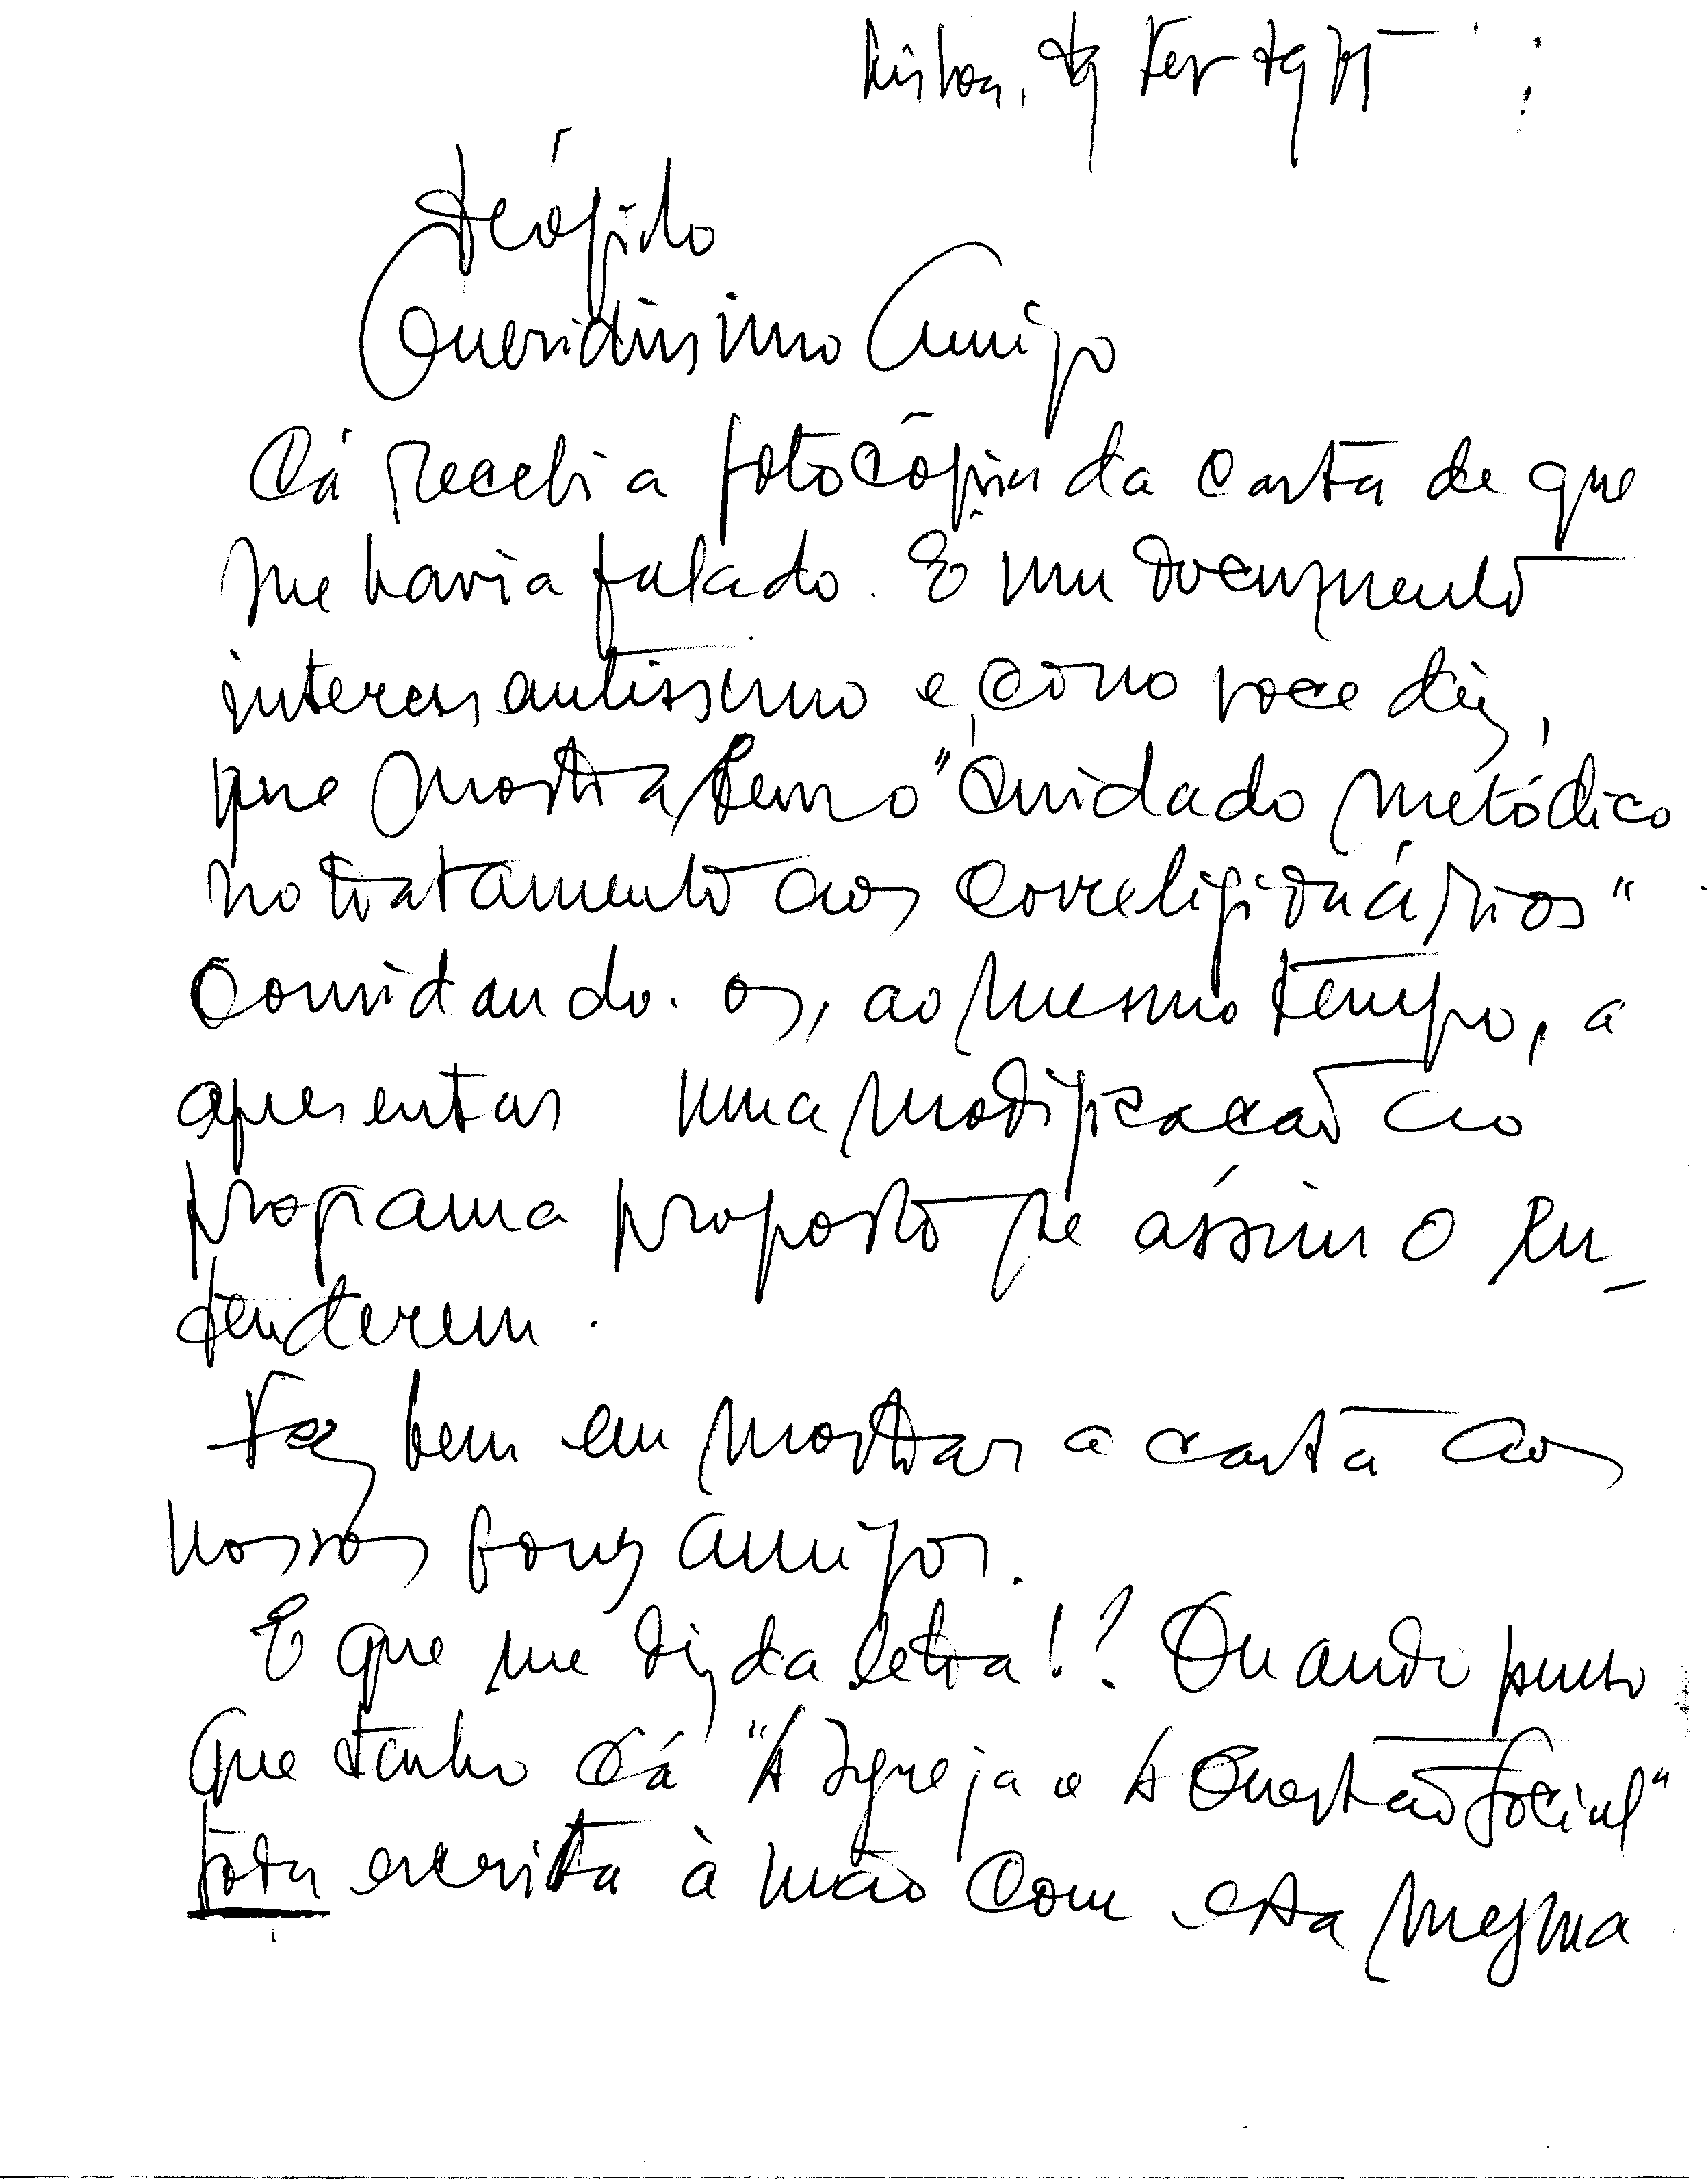 Lisboa, 19 Fev 1971
Teófilo
Queridissimo Amigo
Cá recebi a fotocópia da carta de que
me havia falado. É um documento
interessantissimo e, como voce diz,
que mostra bem o "cuidado metódico
no tratamento aos correligionários"
convidando-os, ao mesmo tempo, a
apresentar uma modificacão ao
programa proposto se assim o en-
tenderem.
Fez bem em mostrar a carta aos
nossos bons amigos.
E que me diz da letra!? Quando penso
que tenho cá "A Igreja e A Questão Social"
toda escrita à mão com esta mesma